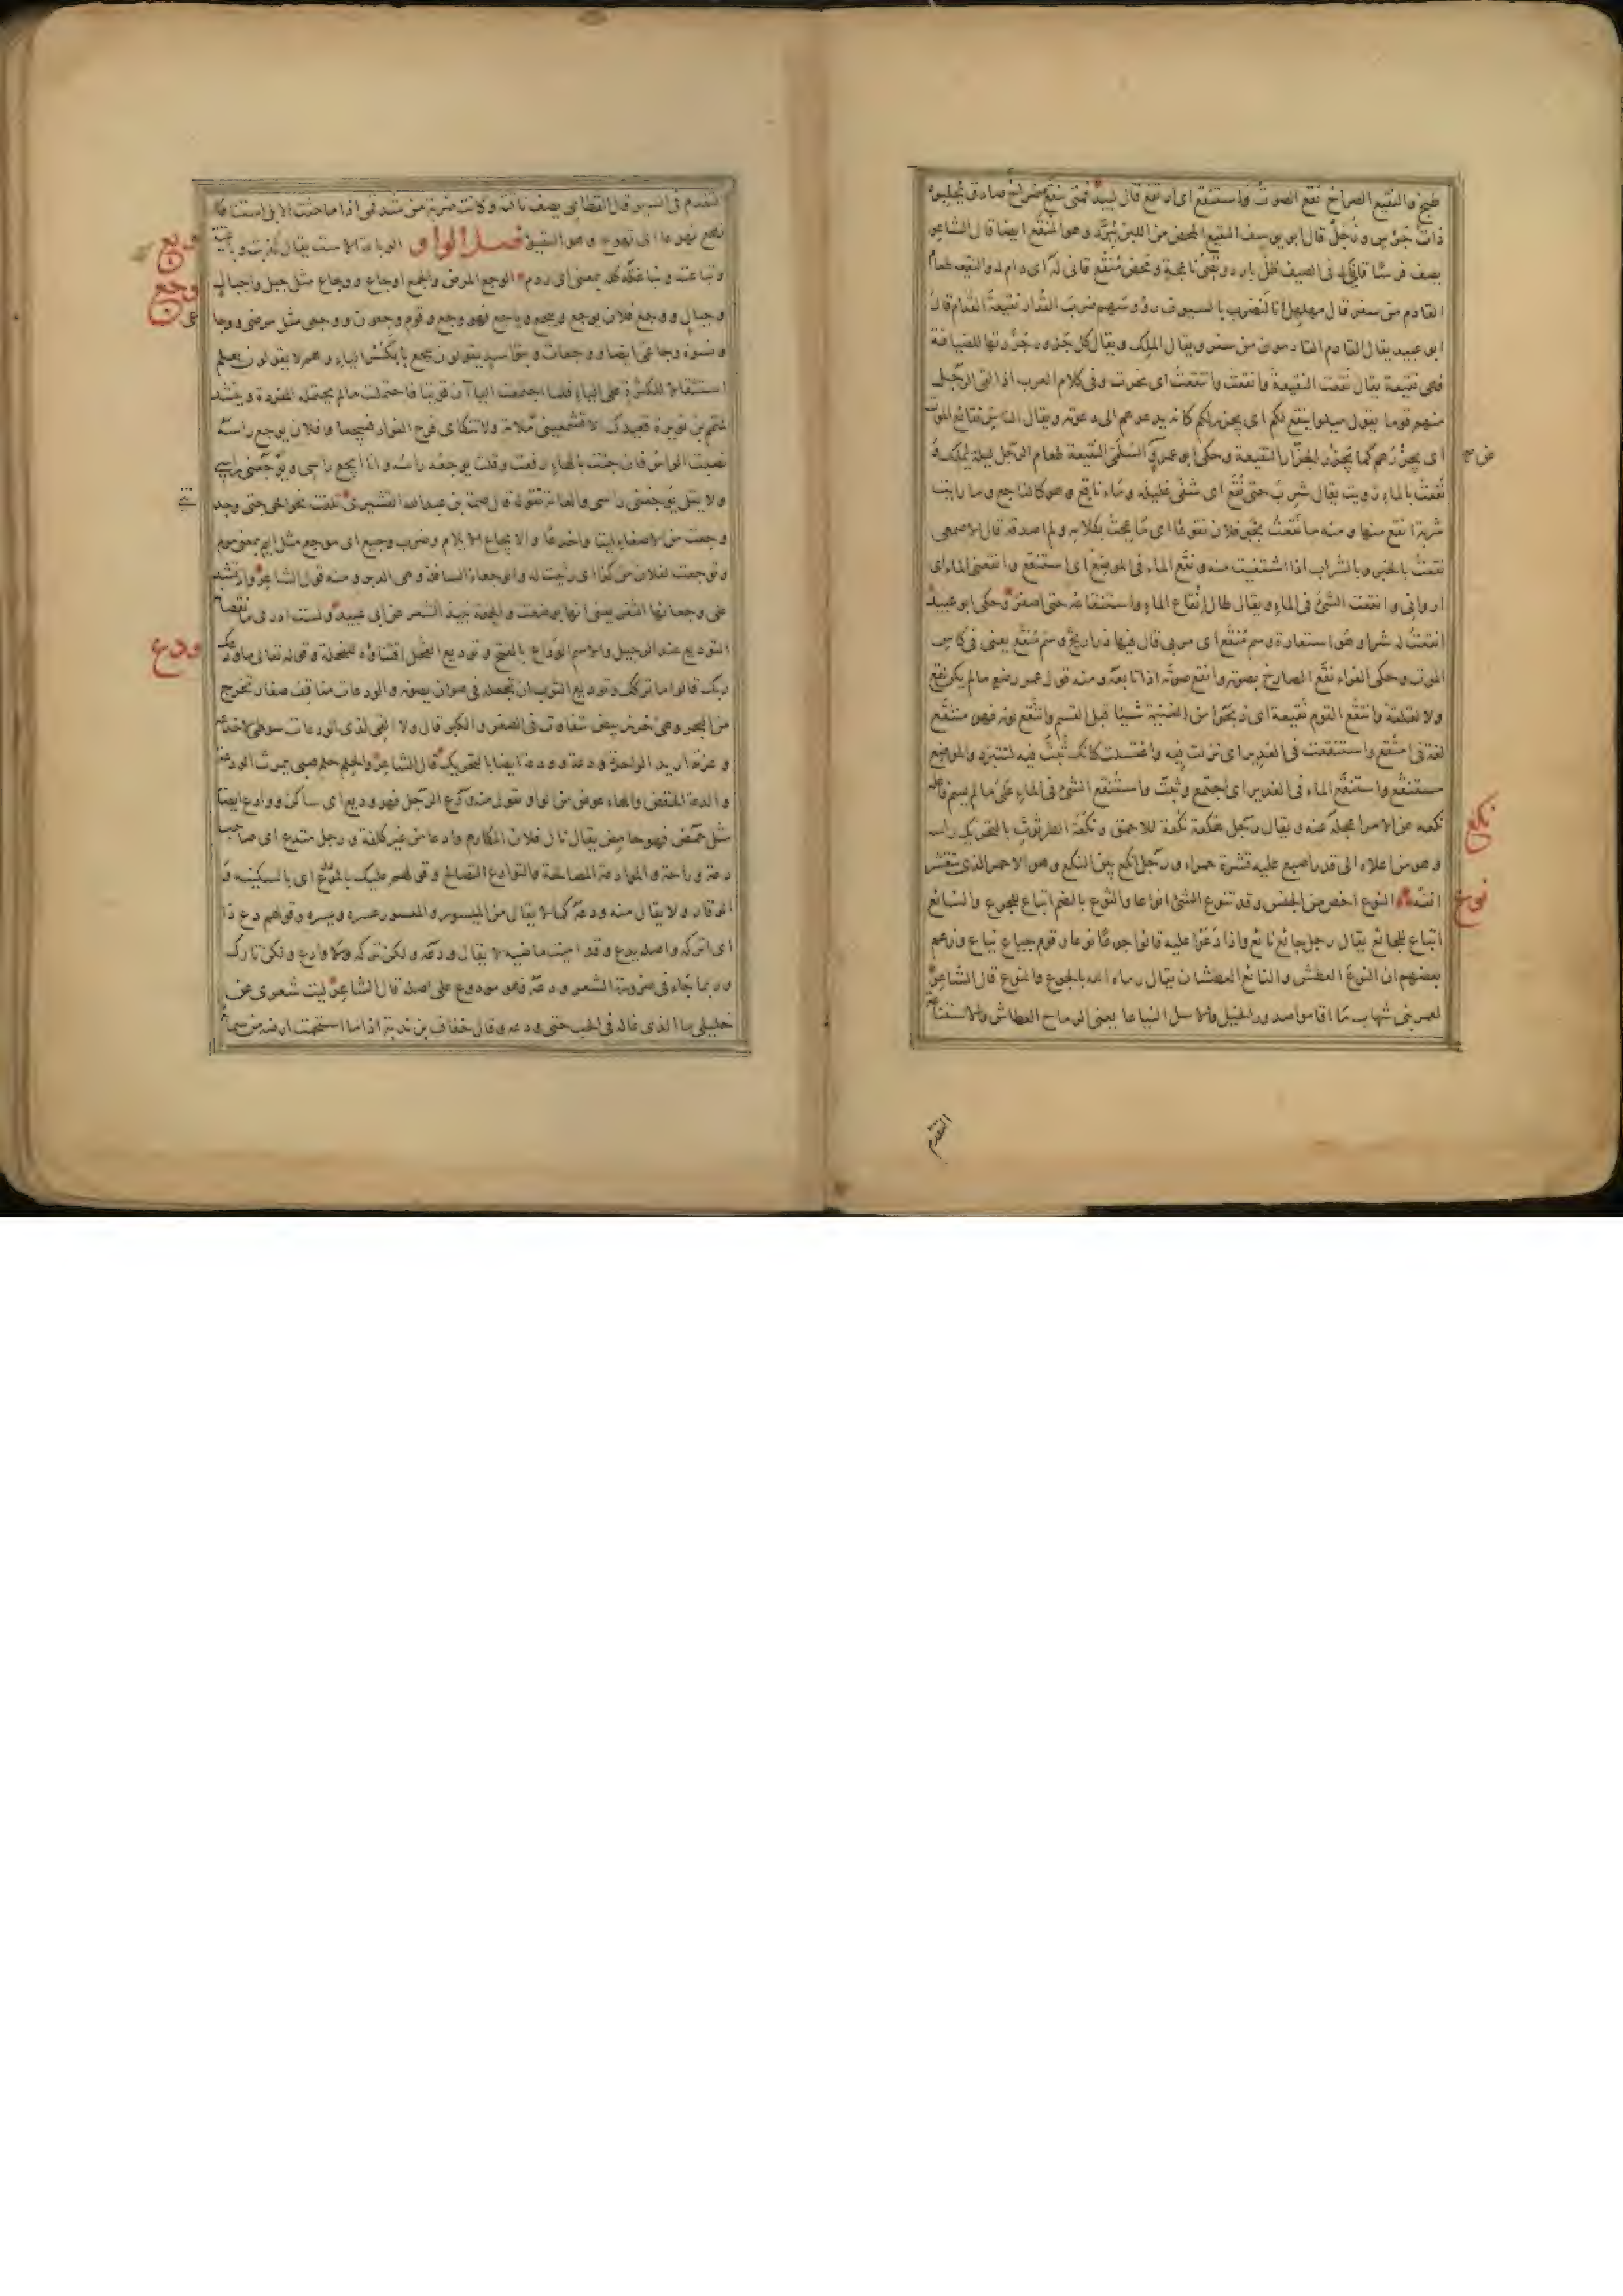 طبخ والنقيع الصراخ نقع الصوت واستنقع اى ارتفع قال لبيد فمتى ينقع صراخ صادق يحلبوه
ذات جرس وزجل قال ابو يوسف النقيع المحض من اللبن يبرد وهو المنقع ايضا قال الشاعر
يصف فرسا قانى له فى الصيف ظل بارد ونصى ناعجة ومحض منقع قانى له اى دام له والنقيعة طعام
القادم من سفر قال مهلهل انا لنضرب بالسيوف رؤوسهم ضرب القدار نقيعة القدام قال
ابو عبيد يقال القدام القادمون من سفر ويقال الملك ويقال كل جزور جزرتها للضيافة
فهى نقيعة يقال نقعت النقيعة وانقعت وانتقعت اى نحرت وفى كلام العرب اذا لقى الرجل
منهم قوما يقول ميلوا ينقع لكم اى يجزر لكم كانه يدعوهم الى دعوته ويقال الناس نقائع الموت
اى يجزرهم كما يجزر الجزار النقيعة وحكى ابو عمرو عن السلمى النقيعة طعام الرجل ليلة يملك و
نقعت بالماء رويت يقال شرب حتى نقع اى شفى غليله وماء ناقع وهو كالناجع وما رايت
شربة انقع منها ومنه ما نقعت بخبر فلان نقوعا اى ما عجت بكلامه ولم اصدقه قال الاصمعى
نقعت بالخبر وبالشراب اذا اشتفيت منه ونقع الماء فى الموضع اى استنقع وانقعنى الماء اى
اروانى وانقعت الشئ فى الماء ويقال طال انقاع الماء واستنقاعه حتى اصفر وحكى ابو عبيد
انقعت له شرا وهو استعارة وسم منقع اى مربى قال فيها ذراريح وسم منقع يعنى فى كاس
الموت وحكى الفراء نقع الصارخ بصوته وانقع صوته اذا تابعه ومنه قول عمر رضع مالم يكن نقع
ولا لقلقة وانتقع القوم نقيعة اى ذبحوا من الغنيمة شيئا قبل القسم وانتقع لونه فهو منتقع
لغة فى امتقع واستنقعت فى الغدير اى نزلت فيه واغتسلت كانك ثبت فيه لتتبرد والموضع
مستنقع واستنقع الماء فى الغدير اى اجتمع وثبت واستنقع الشئ فى الماء على مالم يسم فاعله
نكعه عن الامر اعجله عنه ويقال رجل هكعة نكعة للاحمق ونكعة الطرثوث بالتحريك راسه
وهو من اعلاه الى قدر اصبع عليه قشرة حمراء ورجل انكع بين النكع وهو الاحمر الذى يتقشر
انفه النوع اخص من الجنس وقد تنوع الشئ انواعا والنوع بالضم اتباع للجوع والنائع
اتباع للجائع يقال رجل جائع نائع واذا دعوا عليه قالوا جوعا ونوعا وقوم جياع نياع وزعم
بعضهم ان النوع العطش والنائع العطشان يقال رماه الله بالجوع والنوع قال الشاعر
لعمر بنى شهاب ما اقاموا صدور الخيل والاسل النياعا يعنى الرماح العطاش والاستناعة
نكع
نوع
التقدم
التقدم فى السير قال القطامى يصف ناقته وكانت ضربة من شدقمى اذا ما حنت الابل استناعا
نهع نهوعا اى تهوع وهو التقيؤ فصل الواو الوباعة الاست يقال كذبت وباعته
ونباعته ونباغته كله بمعنى اى ردم الوجع المرض والجمع اوجاع ووجاع مثل جبل واجبال
وجبال ووجع فلان يوجع وييجع وياجع فهو وجع وقوم وجعون ووجعى مثل مرضى ووجا
عى
ونسوة وجاعى ايضا ووجعات وبنو اسد يقولون ييجع بكسر الياء وهم لا يقولون يعلم
استثقالا للكسرة على الياء فلما اجتمعت الياآن قويتا فاحتملت مالم يحتمله المفردة وينشد
لمتمم بن نويرة قعيدك الا تسمعينى ملامة ولا تنكاى قرح الفؤاد فييجعا وفلان يوجع راسه
نصبت الراس فان جئت بالهاء رفعت وقلت يوجعه راسه وانا ايجع راسى ويوجعنى راسى
ولا تقل يوجعنى راسى والعامة تقوله قال صمة بن عبد الله القشيرى تلفت نحو الحى حتى وجد
تنى
وجعت من الاصغاء ليتا واخدعا والايجاع الايلام وضرب وجيع اى موجع مثل اليم بمعنى مولم
وتوجعت لفلان من كذا اى رثيت له والوجعاء السافلة وهى الدبر ومنه قول الشاعر وانشد
على وجعائها الثفر يعنى انها بوضعت والجعة نبيذ الشعير عن ابى عبيد ولست ادرى ما نقصانه
التوديع عند الرحيل والاسم الوداع بالفتح وتوديع الفحل اقتناؤه للفحلة وقوله تعالى ما ودعك
ربك قالوا ما تركك وتوديع الثوب ان تجعله فى صوان يصونه والودعات مناقف صغار تخرج
من البحر وهى خرز بيض تتفاوت فى الصغر والكبر قال ولا القى لذى الودعات سوطى لاخدعه
وغرته اريد الواحدة ودعة وودعة ايضا بالتحريك قال الشاعر والحلم حلم صبى يمرث الودعة
والدعة الخفض والهاء عوض من الواو تقول منه ودع الرجل فهو وديع اى ساكن ووادع ايضا
مثل حمض فهو حامض يقال نال فلان المكارم وادعا من غير كلفة ورجل متدع اى صاحب
دعة وراحة والموادعة المصالحة والتوادع التصالح وقولهم عليك بالمودوع اى بالسكينة و
الوقار ولا يقال منه ودعه كما لا يقال من الميسور والمعسور عسره ويسره وقولهم دع ذا
اى اتركه واصله ودع يدع وقد اميت ماضيه لا يقال ودعه ولكن تركه ولا وادع ولكن تارك
وربما جاء فى ضرورة الشعر ودعه فهو مودوع على اصله قال الشاعر ليت شعرى عن
خليلى ما الذى غاله فى الحب حتى ودعه وقال خفاف بن ندبة اذا ما استحمت ارضه من سمائه
وبع
وجع
ودع